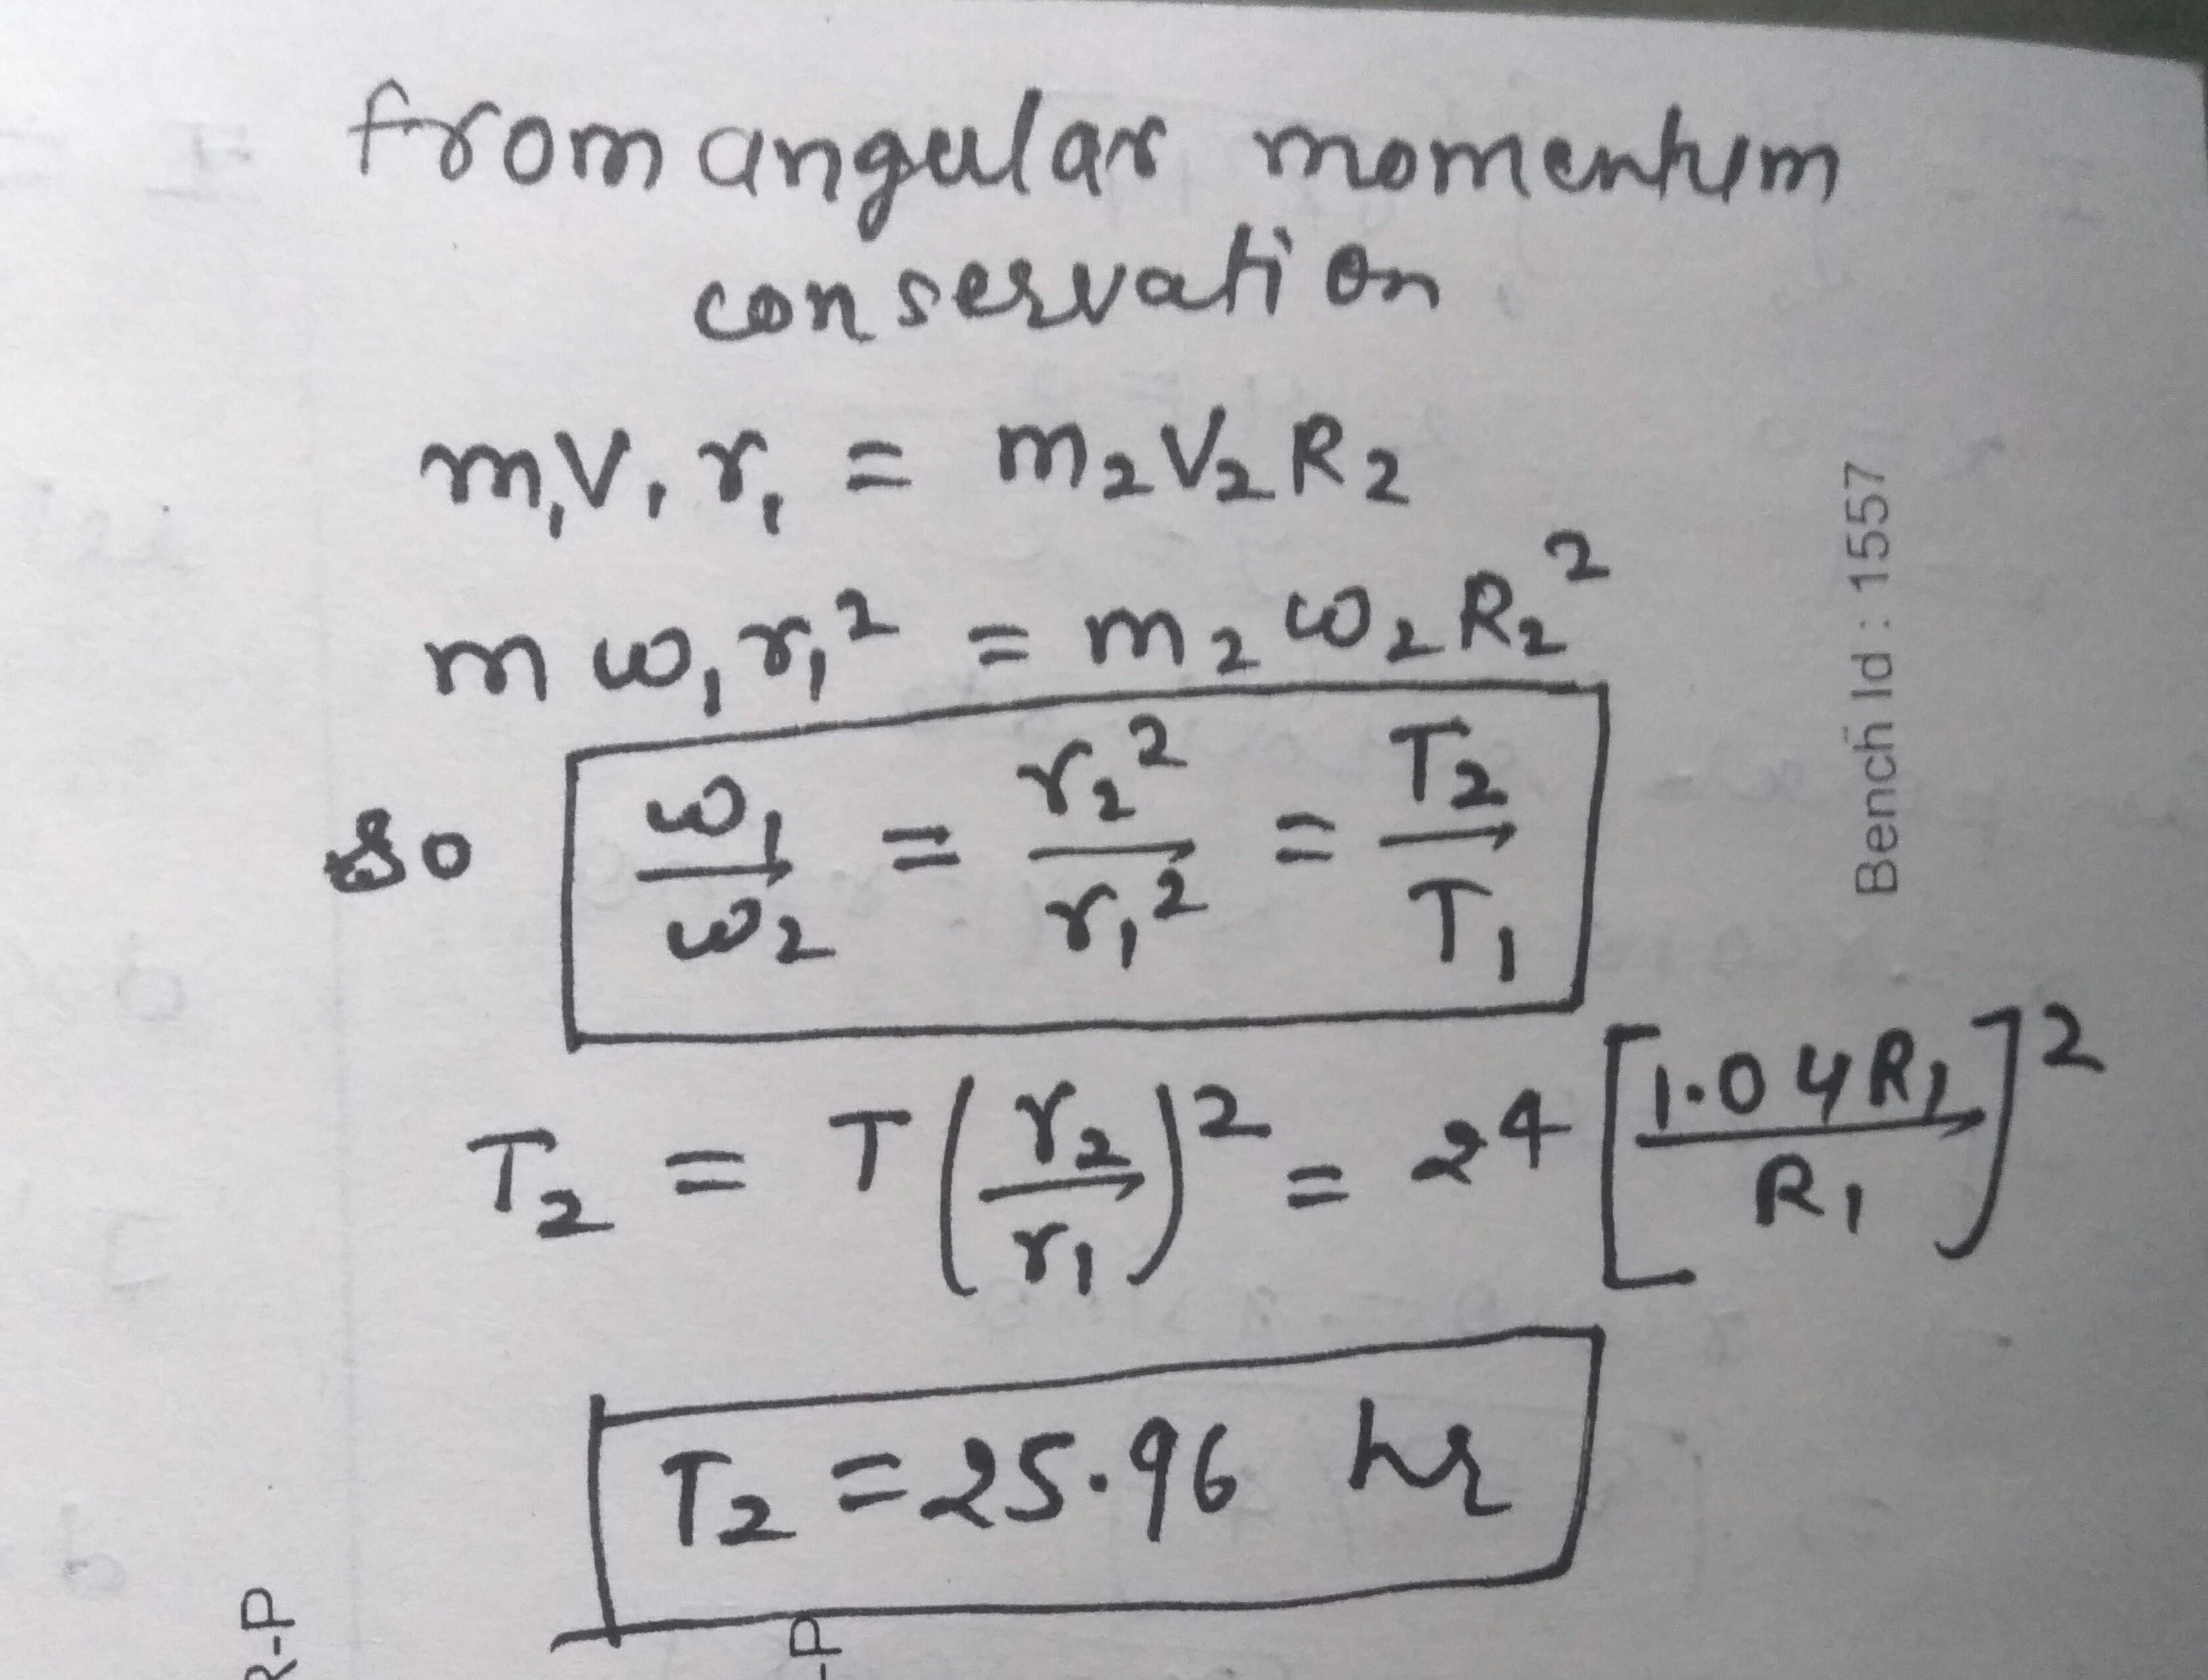 from angular momentum
conservation
m₁V₁r₁ = m₂V₂R₂
mω₁r₁² = m₂ω₂R₂²
So ω₁/ω₂ = r₂²/r₁² = T₂/T₁
T₂ = T(r₂/r₁)² = 24[1.04R₁/R₁]²
T₂ = 25.96 hr
Bench Id : 1557
R-P
-P